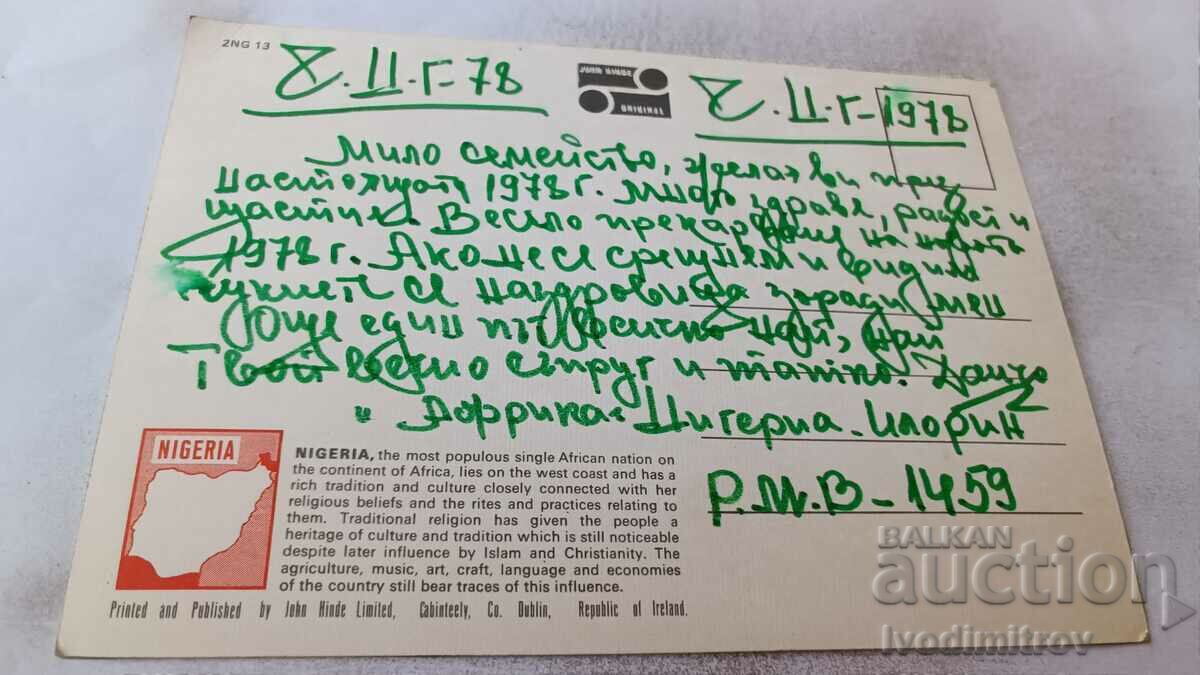 2NG 13
8.II.Г-78
JOHN HINDE
ORIGINAL
8.II.Г-1978
Мило семейство, желая ви през
настоящата 1978 г. много здраве, радост и
щастие. Весело прекарване на
1978 г. Ако не се срещнем и видим
се наздравица заради мен
Още един път всичко най, най
Твой верно съпруг и татко. Данчо
Африка. Нигерия. Илорин
P.M.B-1459
NIGERIA
NIGERIA, the most populous single African nation on
the continent of Africa, lies on the west coast and has a
rich tradition and culture closely connected with her
religious beliefs and the rites and practices relating to
them. Traditional religion has given the people a
heritage of culture and tradition which is still noticeable
despite later influence by Islam and Christianity. The
agriculture, music, art, craft, language and economies
of the country still bear traces of this influence.
Printed and Published by John Hinde Limited, Cabinteely, Co. Dublin, Republic of Ireland.
BALKAN
auction
Ivodimitrov